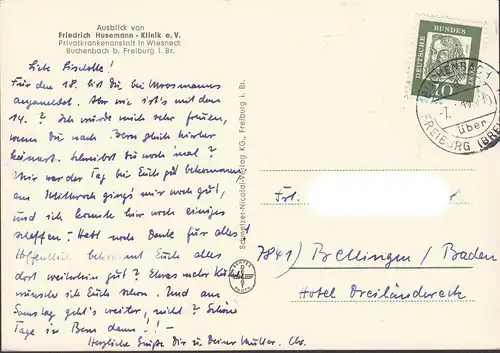 Ausblick von
Friedrich Husemann - Klinik e. V.
Privatkrankenanstalt in Wiesneck
Buchenbach b. Freiburg i. Br.
Liebe Liselotte!
Für den 18. bist du bei Moosmanns
angemeldet. Aber wie ist's mit dem
14.? Ich würde mich sehr freuen,
wenn du nach Bern gleich hierher
kämst. Schreibst Du noch 'mal?
Mir war der Tag bei Euch gut bekommen
am Mittwoch ging's mir noch gut,
und ich konnte hier noch einiges
schaffen. Habt noch Dank für alles!
Hoffentlich bekommt Euch alles
dort weiterhin gut? Etwas mehr
wünsche ich Euch schon. Und am
Samstag geht's weiter, nicht? Schöne
Tage in Bern dann!! –
Herzliche Grüße Dir u Deiner Mutter. Chr.
Schmelzer-Nicolai-Verlag KG., Freiburg i. Br.
DEUTSCHE BUNDES
10
BUCHENBACH
über
FREIBURG (BRSG)
Frl.
7841) Bellingen / Baden
Hotel Dreiländereck